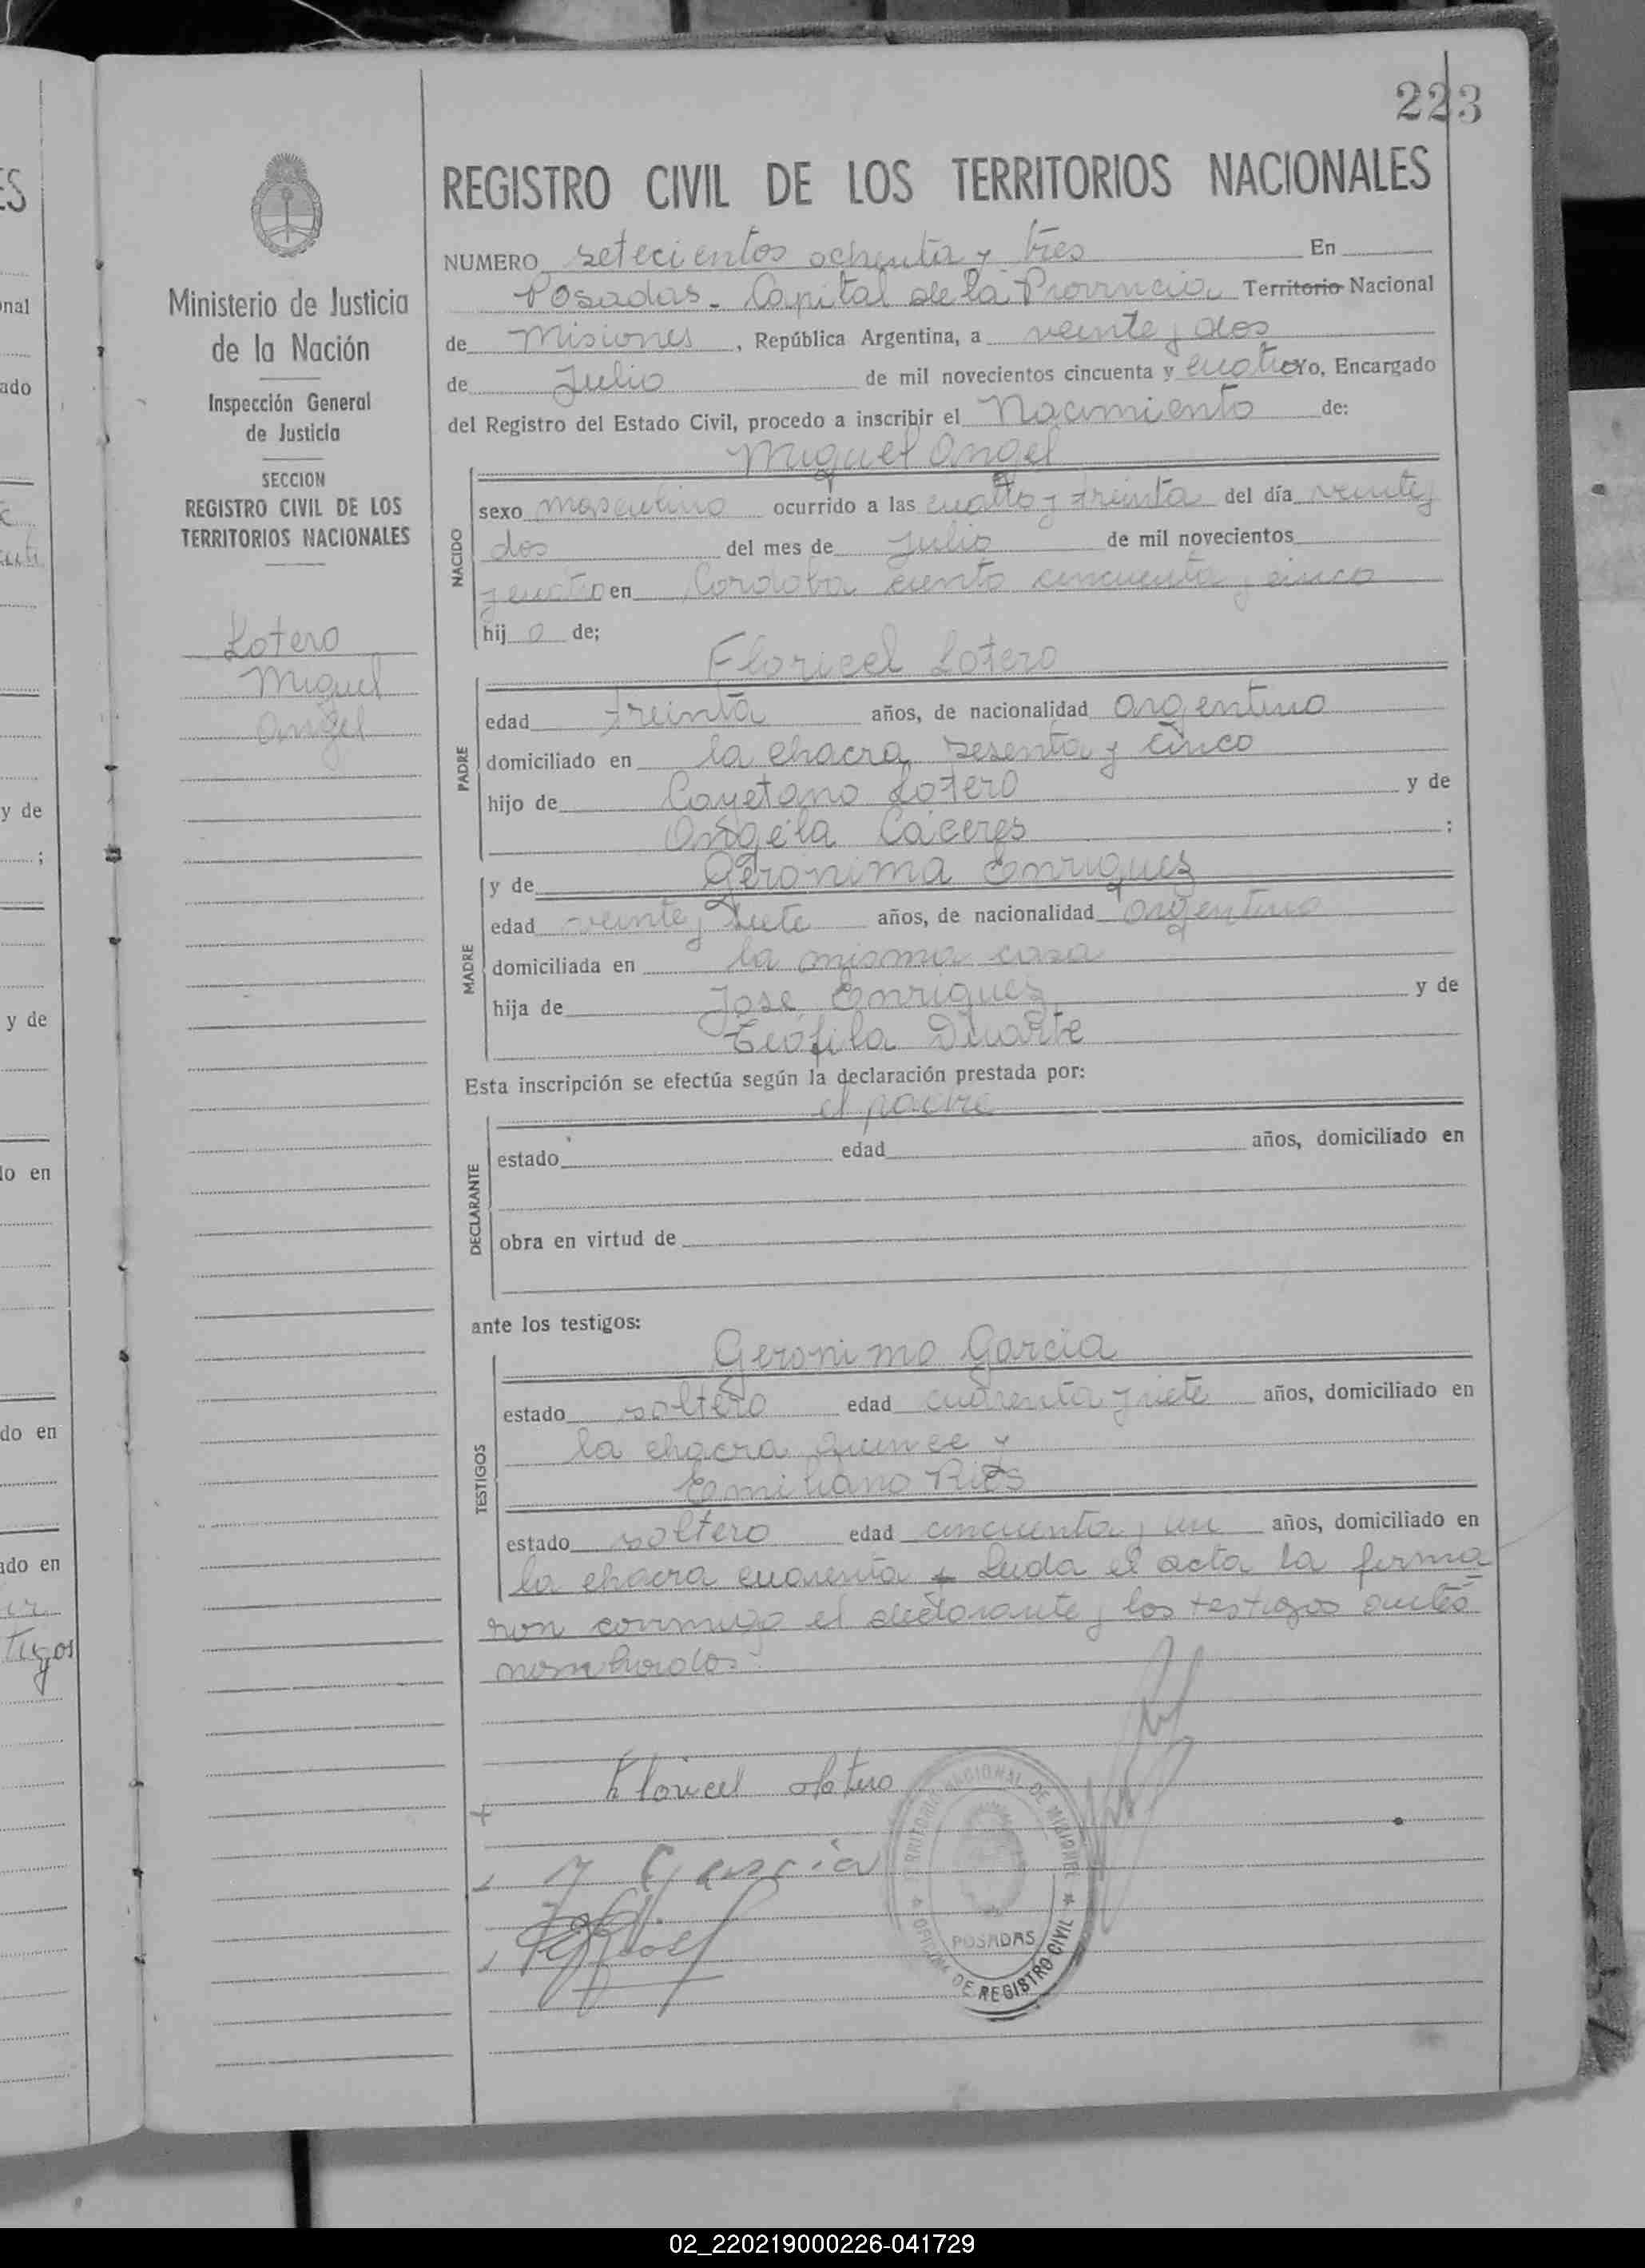 223
REGISTRO CIVIL DE LOS TERRITORIOS NACIONALES
Ministerio de Justicia
de la Nación
Inspección General
de Justicia
SECCION
REGISTRO CIVIL DE LOS
TERRITORIOS NACIONALES
Lotero
Miguel
Angel
NUMERO setecientos ochenta y tres En
Posadas - Capital de la Provincia Territorio Nacional
de Misiones, República Argentina, a veinte y dos
de Julio de mil novecientos cincuenta y cuatro Yo, Encargado
del Registro del Estado Civil, procedo a inscribir el Nacimiento de:
Miguel Angel
NACIDO
sexo masculino ocurrido a las cuatro y treinta del día veinte y
dos del mes de Julio de mil novecientos
y cuatro en Cordoba ciento cincuenta y cinco
hij o de;
Floricel Lotero
PADRE
edad treinta años, de nacionalidad argentino
domiciliado en la chacra sesenta y cinco
hijo de Cayetano Lotero y de
Angela Caceres ;
y de Geronima Enriquez
MADRE
edad veinte y siete años, de nacionalidad argentina
domiciliada en la misma casa
hija de José Enriquez y de
Teofila Duarte
Esta inscripción se efectúa según la declaración prestada por:
el padre
DECLARANTE
estado edad años, domiciliado en
obra en virtud de
ante los testigos:
Geronimo Garcia
TESTIGOS
estado soltero edad cuarenta y siete años, domiciliado en
la chacra quince y
Emiliano Rios
estado soltero edad cincuenta y un años, domiciliado en
la chacra cuarenta Leida el acta la firma
ron conmigo el declarante y los testigos antes
nombrados.
Floricel Lotero
Garcia
POSADAS
OFICINA DE REGISTRO CIVIL
y de
;
y de
testigos
02_220219000226-041729